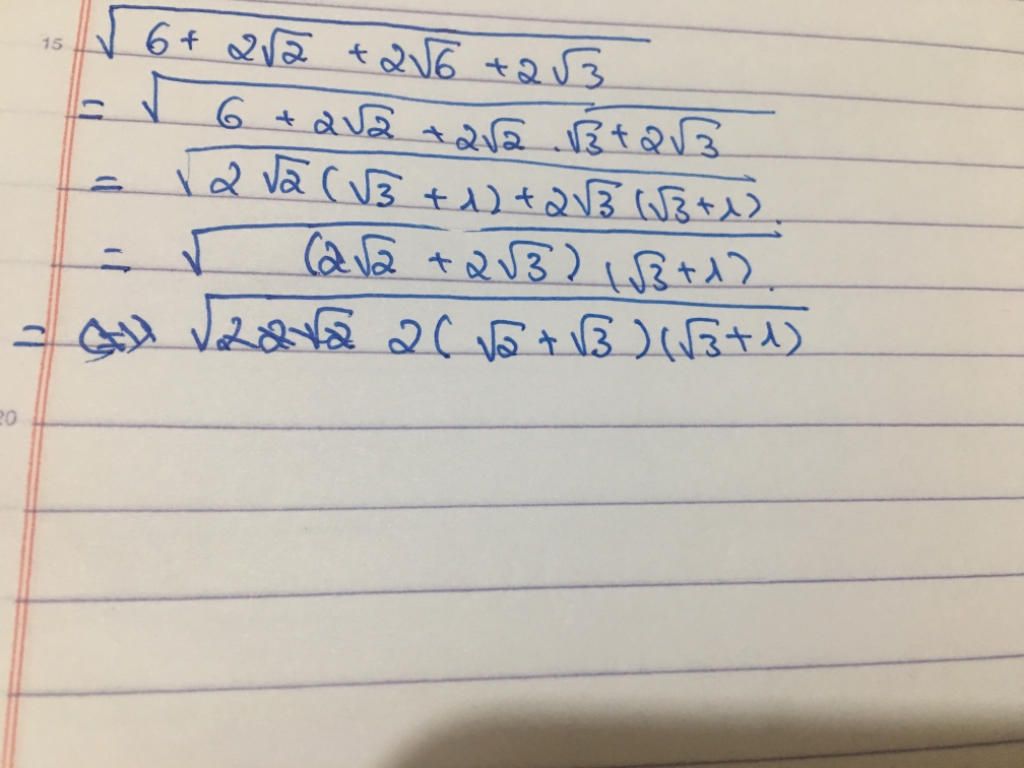 15 √(6 + 2√2 + 2√6 + 2√3)
= √(6 + 2√2 + 2√2 . √3 + 2√3)
= √(2√2(√3 + 1) + 2√3(√3 + 1)).
= √((2√2 + 2√3)(√3 + 1)).
= √(2(√2 + √3)(√3 + 1))
20